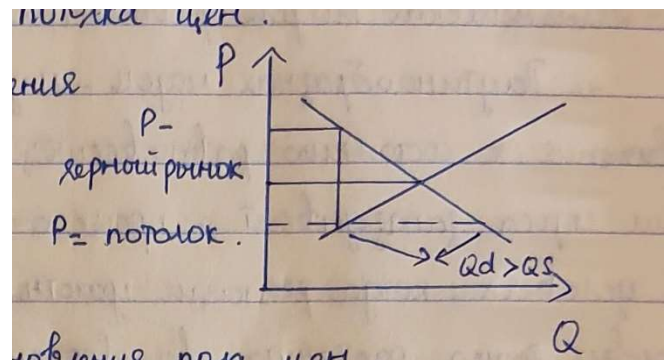 потолка цен.
P
ния
P-
черный рынок
P= потолок.
Qd>QS
Q
новления пола цен